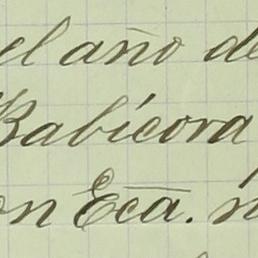 el año de
Babícora
on Eca. n